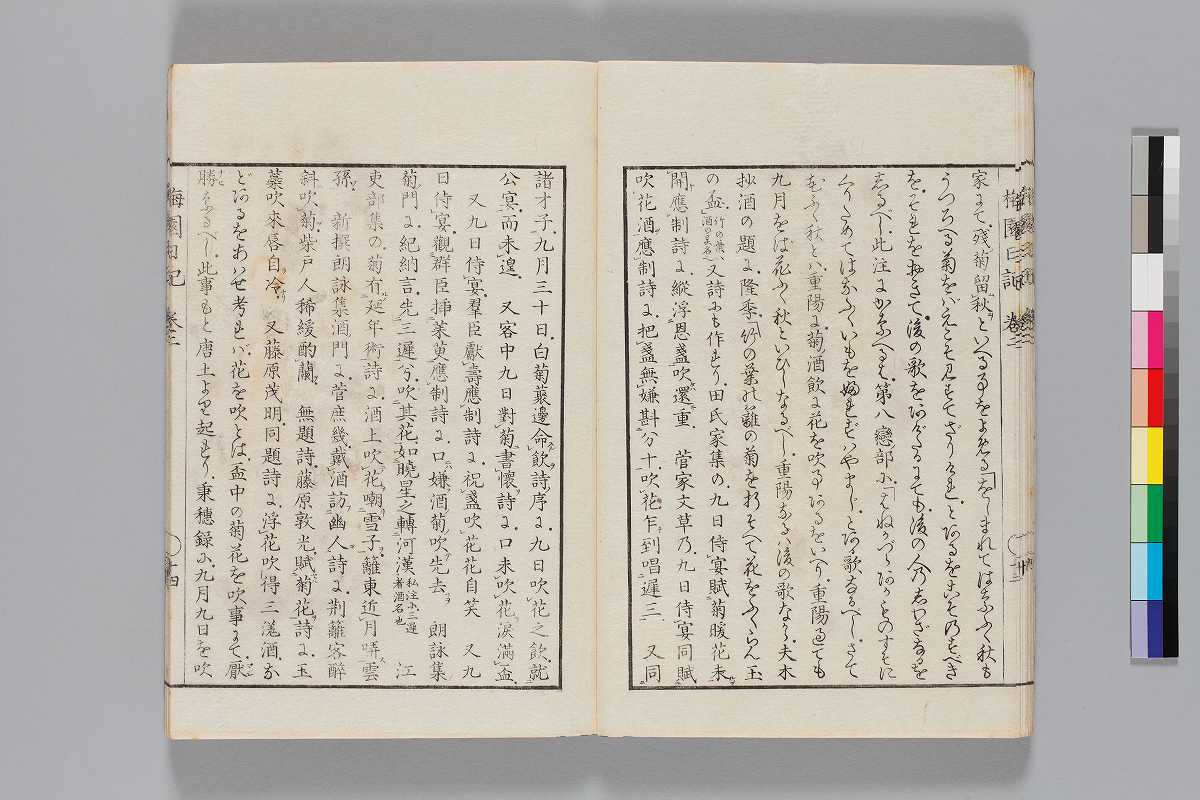 家にて、残菊留秋といへる事をよめる、をしまれてはなふく秋も
うつろへる菊をばえこそ見すてざりけれ、とあるをこそのすべき
を、それをおきて、後の歌をあげたるにても、後の人のしわざなるを
しるべし、此注にかなへるは、第八戀部に、はねかづらあがものすそに
重陽に菊酒飲に花を吹事あるをいへり、重陽過ても
九月をば花ふく秋といひしなるべし、重陽なるは後の歌ながら、夫木
抄酒の題に、隆季、竹の葉に籬の菊を折そへて花をふくらん玉
の盃、竹の葉、酒の異名、又詩にも作れり、田氏家集の九日侍宴賦菊暖花未
開應制詩に、縱浮恩盞吹還重 菅家文草の、九日侍宴同賦
吹花酒應制詩に、把盞無嫌斟分十、吹花乍到唱遲三 又同
梅園日記 巻二
諸才子、九月三十日、白菊叢邊命飲詩序に、九日吹花之飲、就
公宴而未遑 又客中九日對菊書懷詩に、口未吹花涙滿盃
又九日侍宴、羣臣獻壽應制詩に、祝盞吹花花自笑 又九
日侍宴、觀群臣挿茱萸應制詩に、口嫌酒菊吹先去 朗詠集
菊門に、紀納言、先三遲兮吹其花、如曉星之轉河漢 私注に三遲者酒名也 江
吏部集の、菊有延年術詩に、酒上吹花嘲雪子、籬東近月哢雲
孫 新撰朗詠集酒門に、菅庶幾、戴酒訪幽人詩に、荊籬客醉
斜吹菊、柴戸人稀緩酌蘭 無題詩、藤原敦光、賦菊花詩に、玉
蘂吹來唇自冷 又藤原茂明、同題詩に、浮花吹得三遲酒、な
どあるをあはせ考れば、花を吹とは、盃中の菊花を吹事にて、厭
勝なるべし、此事もと唐土より起れり、秉穗録に、九月九日を吹
梅園日記 巻二 十四